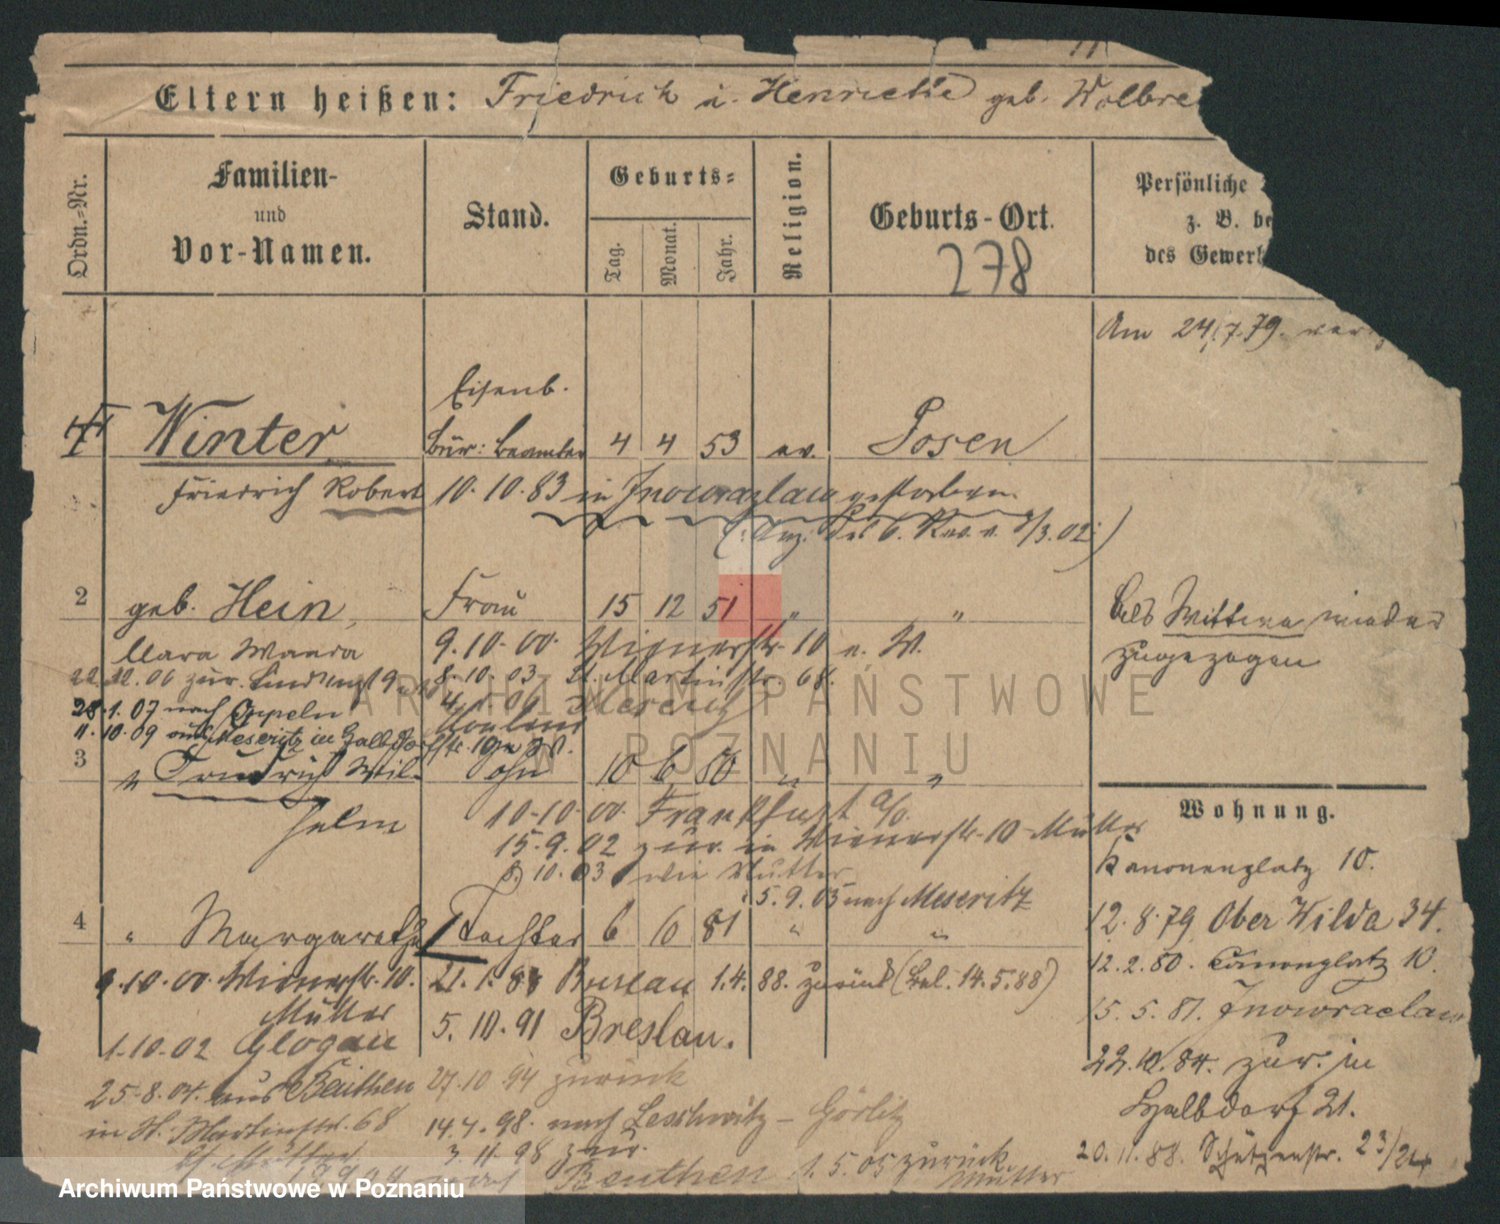 Eltern heißen: Friedrich u. Henriette geb. Wolbre
Ordn.-Nr.
Familien-
und
Vor-Namen.
Stand.
Geburts-
Tag.
Monat.
Jahr.
Religion.
Geburts-Ort.
278
Persönliche
z. B. be
des Gewerk
Am 24.7.79.
Eisenb.
Winter Bür: Beamter 4 4 53 ev. Posen
Friedrich Robert 10.10.83 in Inowrazlaw gestorben.
2 geb. Hein, Frau 15 12 51 " "
Clara Wanda 9.10.00. Wienerstr. 10 v. W.
8.10.03 St. Martinstr. 68.
28.1.07 nach Oppeln
11.10.09 aus Meseritz in Halbdorfstr.
Als Wittwe wieder
zugezogen
3 " Friedrich Wil- Sohn 10 6 80 " "
helm 10.10.00. Frankfurt a/O.
15.9.02 zur. in Wienerstr. 10 Mutter
8.10.03 wie Mutter
5.9.05 nach Meseritz
4 " Margarethe Tochter 6 6 81 " "
9.10.00. Wienerstr. 10. 21.1.88 Breslau 1.4.88. zurück (Bel. 14.5.88)
Mutter
1.10.02 Glogau 5.10.91 Breslau.
25.8.04. aus Beuthen 27.10 94 zurück
in St. Martinstr. 68 14.4.98. nach Leschwitz - Görlitz
3.11.98 zur.
Beuthen 1.5.05 zurück
Mutter
Wohnung.
Kanonenplatz 10.
12.8.79 Ober Wilda 34.
12.2.80. Canonenplatz 10.
15.5.81. Inowraclaw
22.10.84. zur. in
Halbdorf 21.
20.11.88. Schützenstr. 23/24
ARCHIWUM PAŃSTWOWE
W POZNANIU
Archiwum Państwowe w Poznaniu